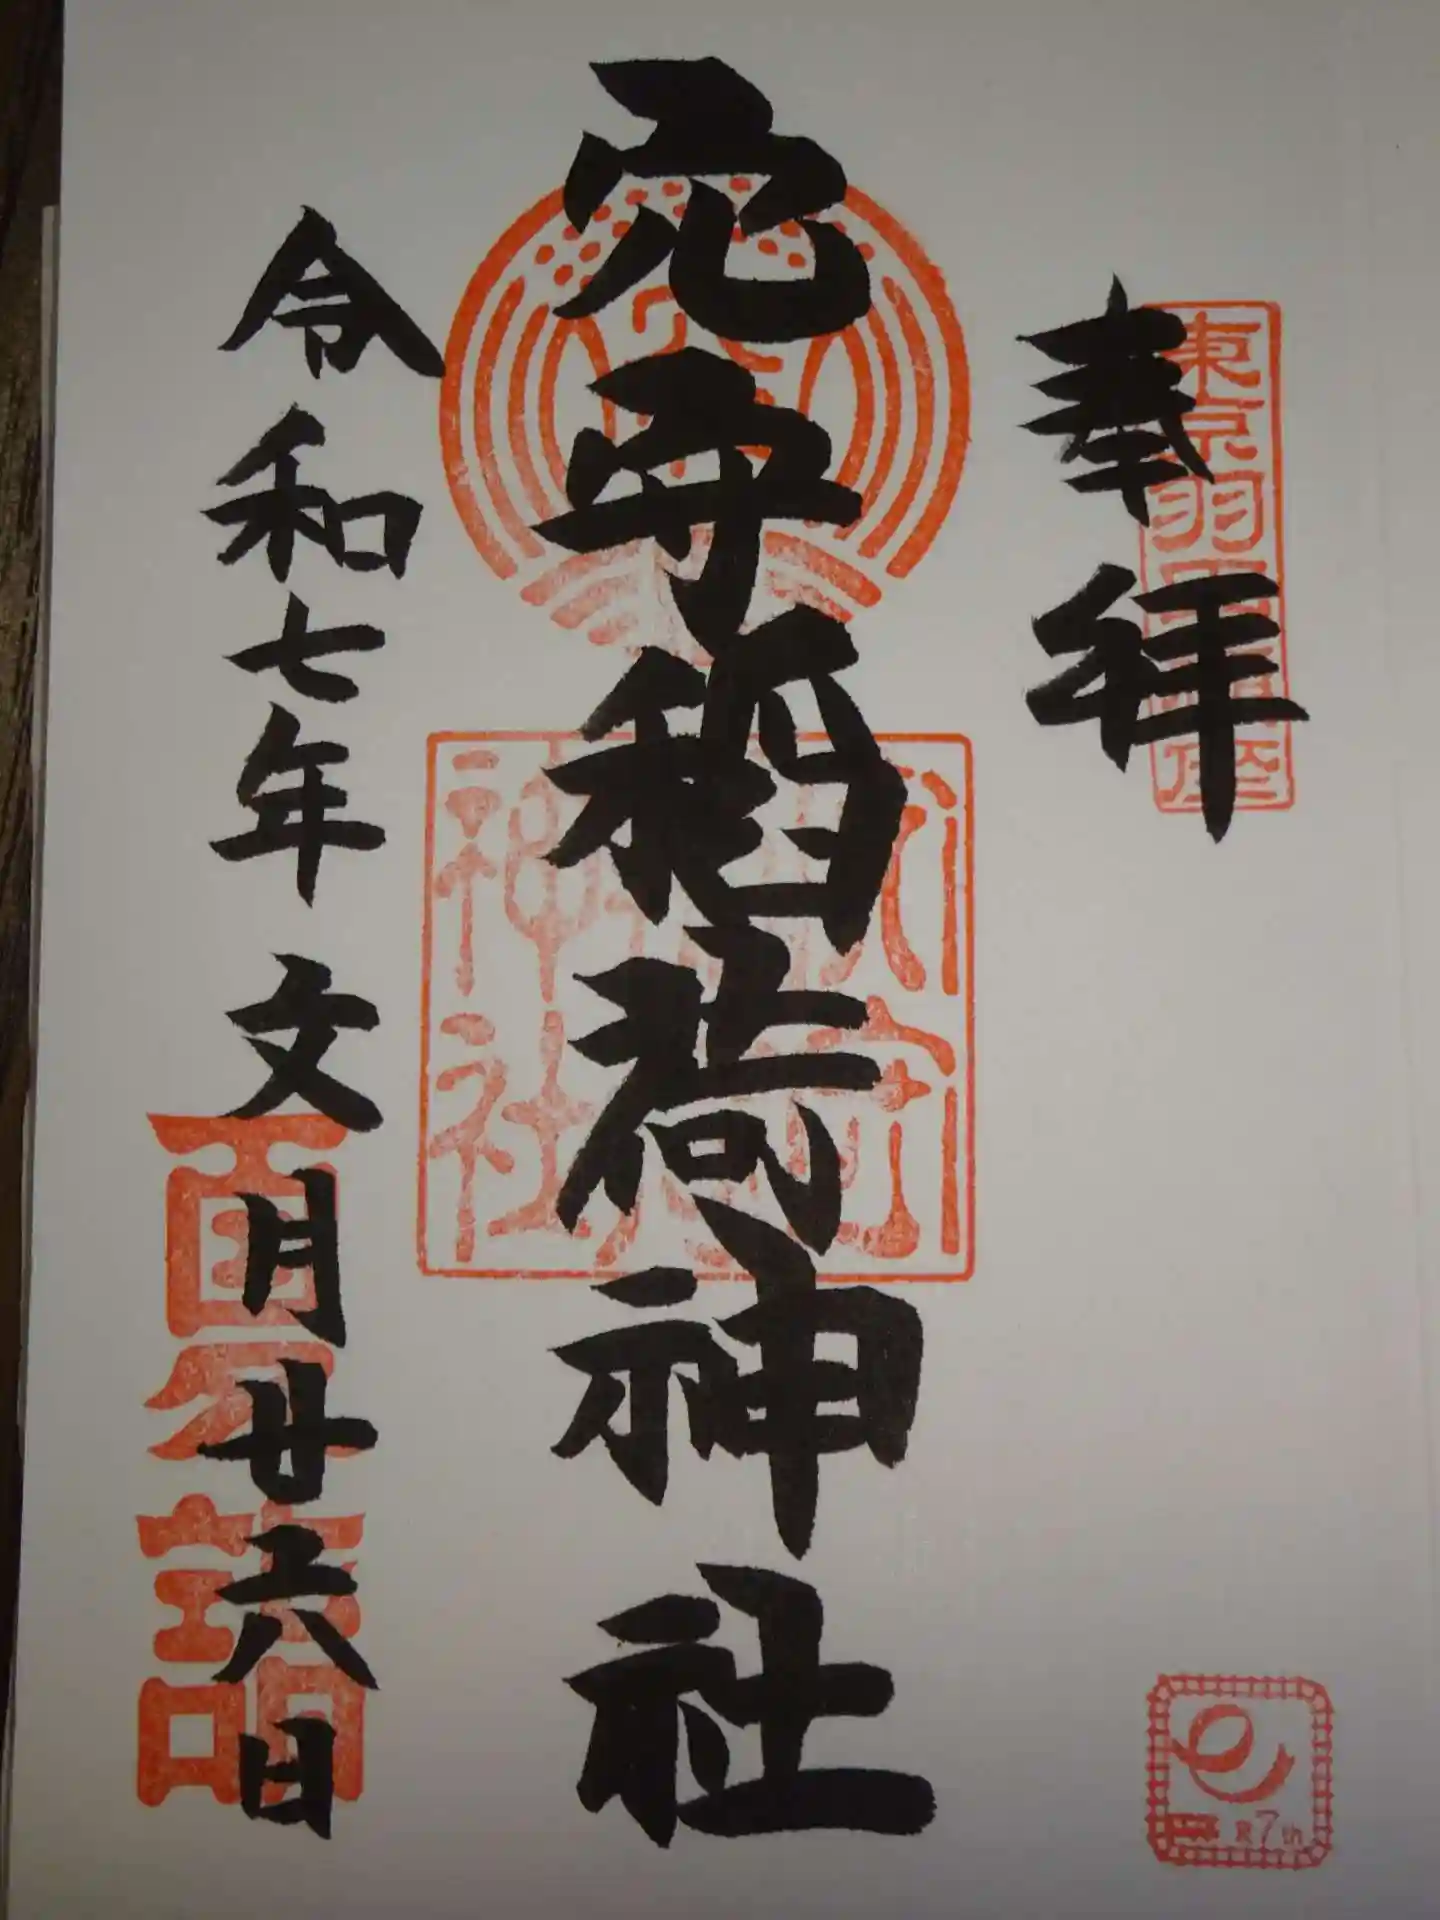 奉拝
東京羽田鎮座
穴守稲荷神社
穴守稲荷神社
令和七年 文月廿六日
夏詣
R7th